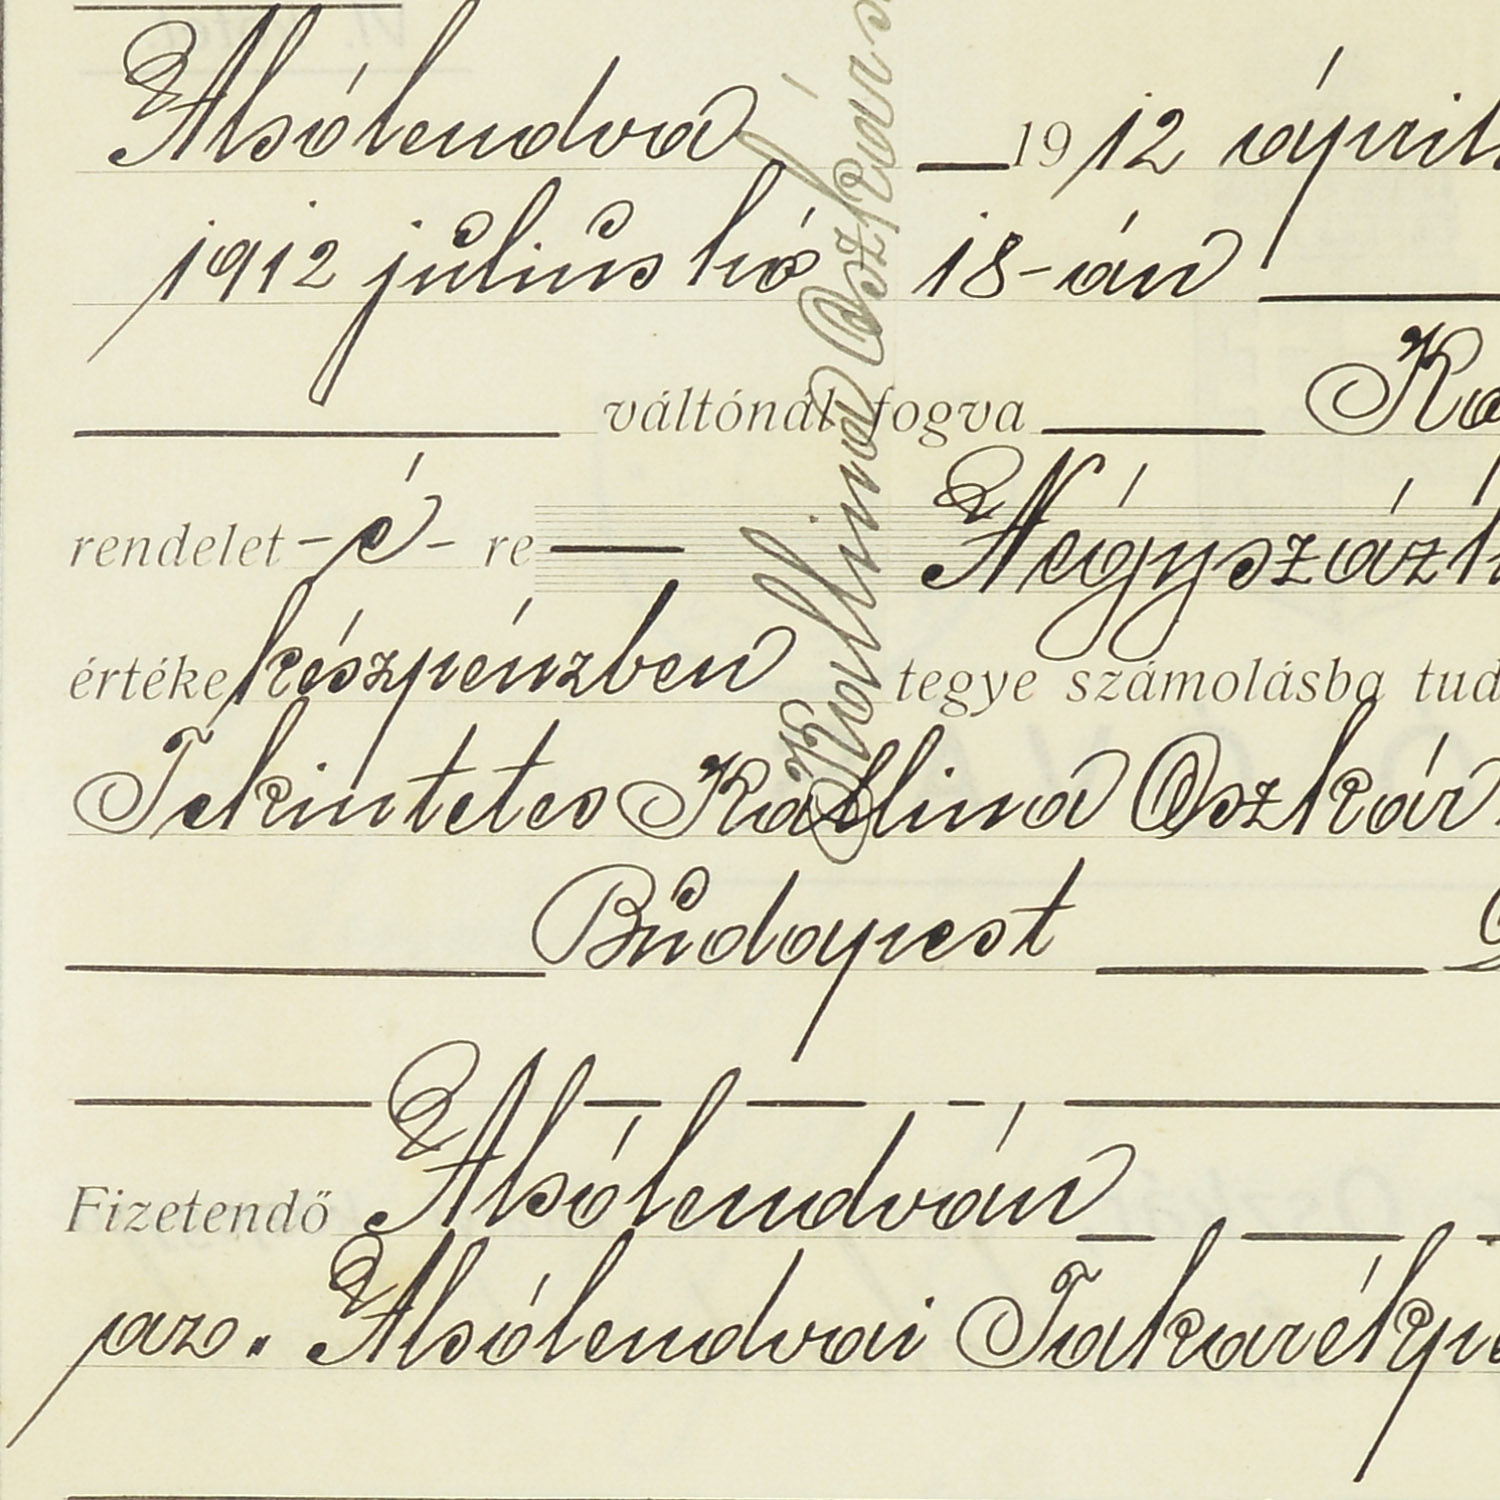 Alsólendva 1912 ápril
1912 július hó 18-án
váltónál fogva
rendelet-é-re Négyszázh
értéke készpénzben tegye számolásba tud
Tekintetes Kallina Oszkár
Budapest
Fizetendő Alsólendván
az. Alsólendvai Takarékp
Kallina Oszkár s